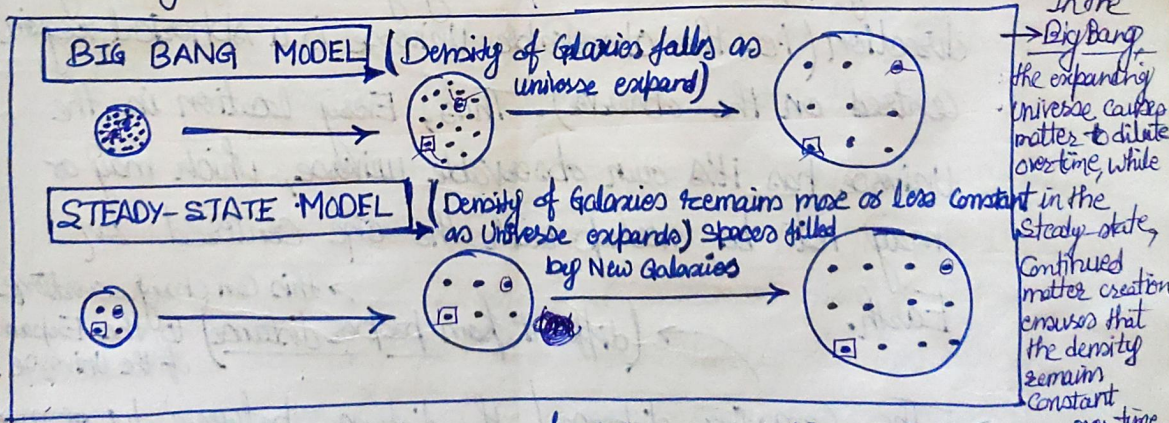 BIG BANG MODEL (Density of Glaxies falls as
universe expand)
STEADY-STATE MODEL (Density of Galaxies remains more or less Constant
as Universe expands) spaces filled
by New Galaxies
In the
→ Big Bang,
the expanding
universe causes
matter to dilute
over time, while
in the
Steady-state,
Continued
matter creation
ensures that
the density
remains
Constant
over time